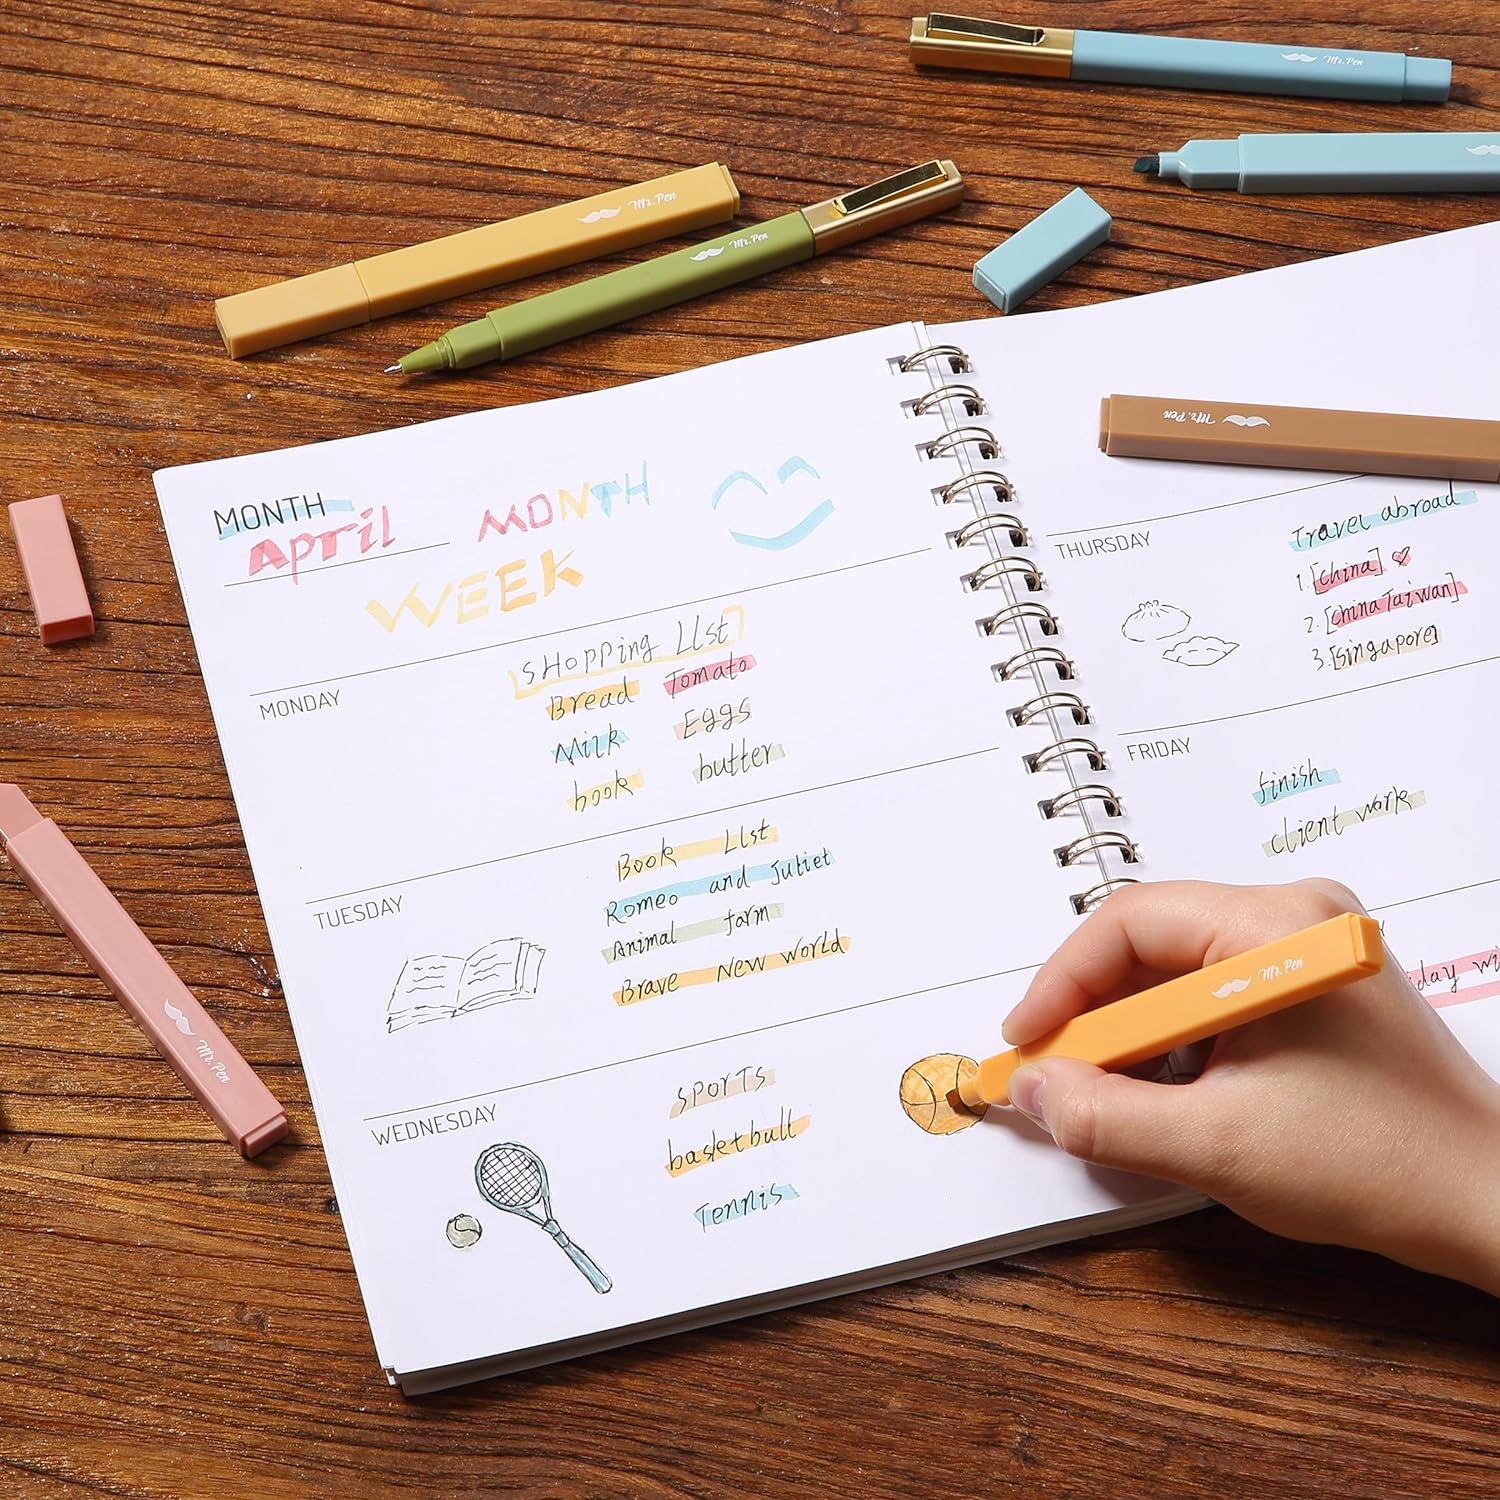 Mr. Pen
Mr. Pen
Mr. Pen
Mr. Pen
Mr. Pen
MONTH
April
MONTH
WEEK
MONDAY
SHopping LIst
Bread Tomato
Milk Eggs
book butter
TUESDAY
Book LIst
Romeo and Juliet
Animal farm
Brave New World
WEDNESDAY
SPORTS
basketball
Tennis
THURSDAY
Travel abroad
1.[china]
2.[china Taiwan]
3.[singapore]
FRIDAY
finish
client work
Mr. Pen
Mr. Pen